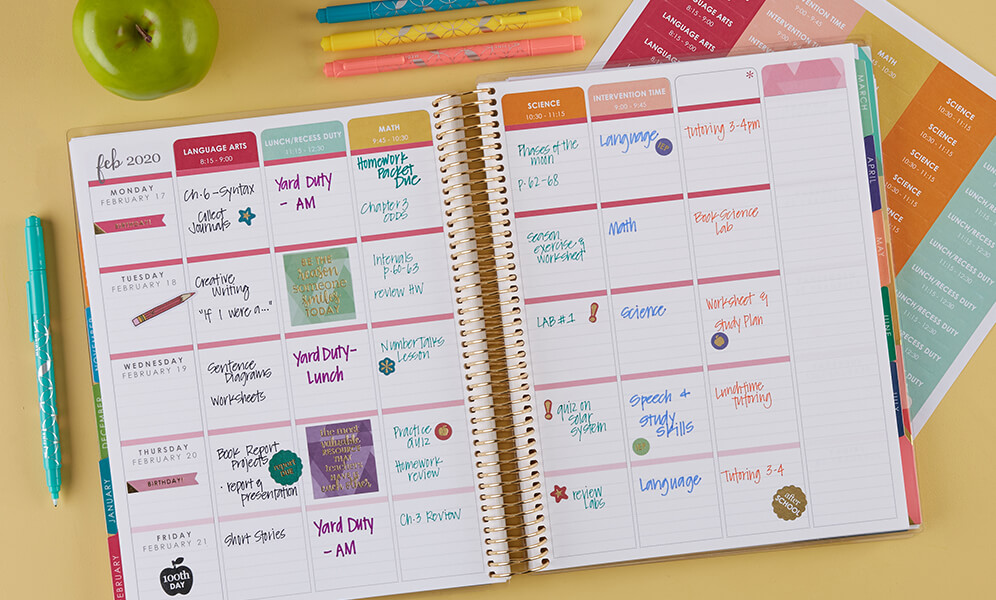 feb 2020
LANGUAGE ARTS
8:15 - 9:00
LUNCH/RECESS DUTY
11:15 - 12:30
MATH
9:45 - 10:30
MONDAY
FEBRUARY 17
Ch. 6 - Syntax
Collect
Journals
Yard Duty
- AM
Homework
Packet
Due
Chapter 3
ODDS
TUESDAY
FEBRUARY 18
Creative
Writing
"If I were a..."
BE THE
REASON
SOMEONE
SMILES
TODAY
Intervals
p. 60-63
review HW
WEDNESDAY
FEBRUARY 19
Sentence
Diagrams
Worksheets
Yard Duty-
Lunch
Number Talks
Lesson
THURSDAY
FEBRUARY 20
BIRTHDAY!
Book Report
Projects
· report &
presentation
REPORT
DUE
The most
valuable
RESOURCE
Practice
Quiz
Homework
review
FRIDAY
FEBRUARY 21
100th
DAY
Short Stories
Yard Duty
- AM
Ch. 3 Review
DECEMBER
JANUARY
FEBRUARY
SCIENCE
10:30 - 11:15
INTERVENTION TIME
9:00 - 9:40
*
Phases of the
moon
p. 62-68
Language
IEP
Tutoring 3-4pm
Season
exercise &
worksheet
Math
Book Science
Lab
LAB #1
!
Science
Worksheet &
Study Plan
!
quiz on
solar
system
Speech &
Study
Skills
Lunchtime
tutoring
review
Labs
Language
Tutoring 3-4
after
SCHOOL
MARCH
APRIL
MAY
JUNE
JULY
LANGUAGE ARTS
8:15 - 9:00
LANGUAGE ARTS
8:15 - 9:00
LANGUAGE ARTS
INTERVENTION TIME
9:00 - 9:45
INTERVENTION TIME
MATH
10:30
SCIENCE
10:30 - 11:15
SCIENCE
10:30 - 11:15
SCIENCE
10:30 - 11:15
SCIENCE
10:30 - 11:15
LUNCH/RECESS DUTY
11:15 - 12:30
LUNCH/RECESS DUTY
11:15 - 12:30
LUNCH/RECESS DUTY
11:15 - 12:30
LUNCH/RECESS DUTY
11:15 - 12:30